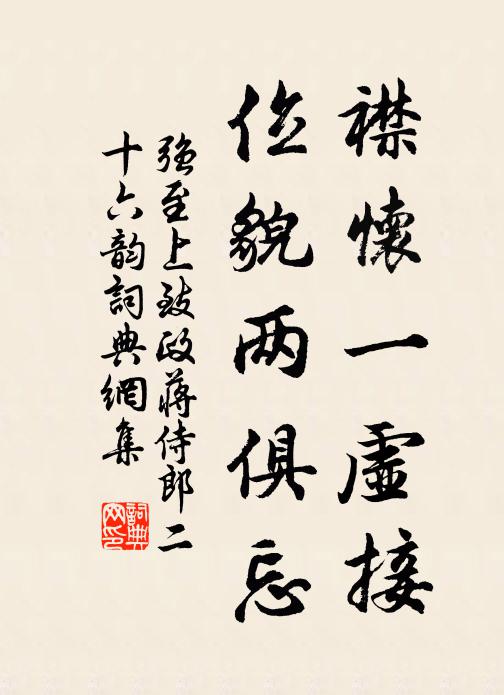 襟懷一虛接
位貌兩俱忘
強至上致政蔣侍郎二
十六韵詞典網集
詞典
网印